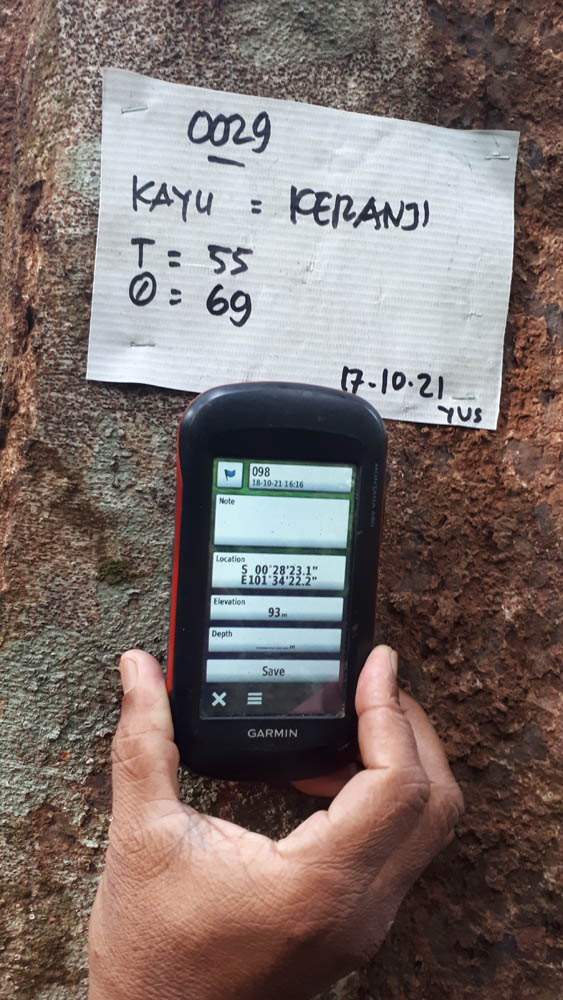 0029
KAYU = KERANJI
T = 55
Ⓘ = 69
17.10.21
YUS
098
18-10-21 16:16
Note
Location
S 00°28'23.1"
E101°34'22.2"
Elevation
93m
Depth
_______m
Save
GARMIN